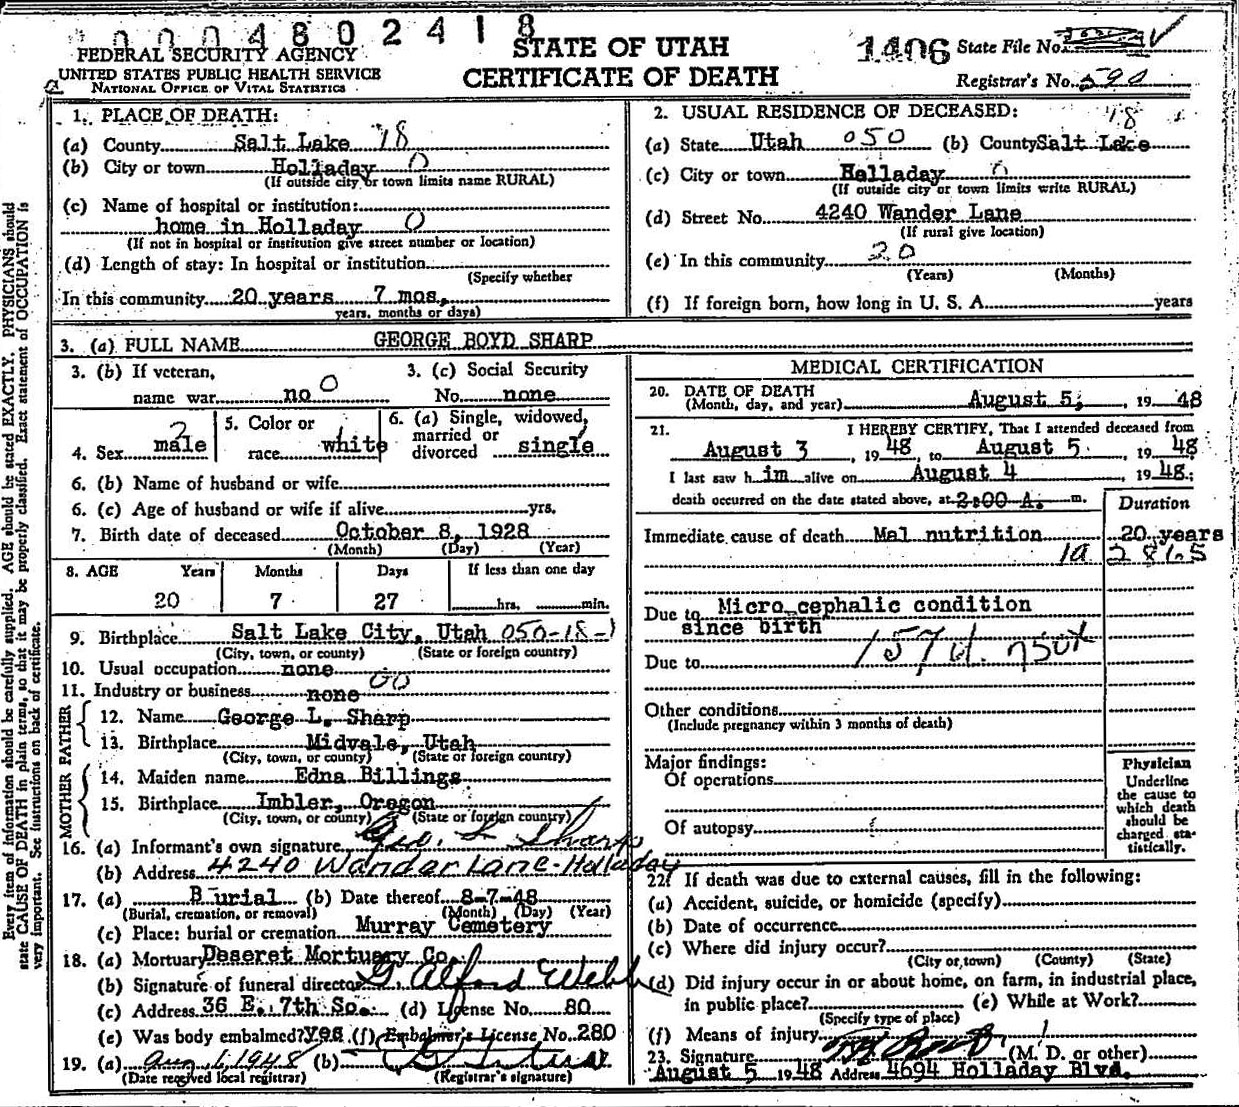 0004802418
FEDERAL SECURITY AGENCY
UNITED STATES PUBLIC HEALTH SERVICE
NATIONAL OFFICE OF VITAL STATISTICS
STATE OF UTAH
CERTIFICATE OF DEATH
1406 State File No.
Registrar's No. 590
1. PLACE OF DEATH:
(a) County Salt Lake 18
(b) City or town Holladay 0
(If outside city or town limits name RURAL)
(c) Name of hospital or institution:
home in Holladay 0
(If not in hospital or institution give street number or location)
(d) Length of stay: In hospital or institution
(Specify whether
In this community 20 years 7 mos,
years, months or days)
2. USUAL RESIDENCE OF DECEASED:
18
(a) State Utah 050 (b) County Salt Lake
(c) City or town Holladay 0
(If outside city or town limits write RURAL)
(d) Street No. 4240 Wander Lane
(If rural give location)
(e) In this community 20
(Years) (Months)
(f) If foreign born, how long in U. S. A. years
3. (a) FULL NAME GEORGE BOYD SHARP
3. (b) If veteran,
name war no 0
3. (c) Social Security
No. none
4. Sex male
5. Color or
race white
6. (a) Single, widowed,
married or
divorced single
6. (b) Name of husband or wife
6. (c) Age of husband or wife if alive yrs.
7. Birth date of deceased October 8, 1928
(Month) (Day) (Year)
8. AGE Years Months Days If less than one day
20 7 27 hrs. min.
9. Birthplace Salt Lake City, Utah 050-18-1
(City, town, or county) (State or foreign country)
10. Usual occupation none
11. Industry or business none 00
FATHER
12. Name George L. Sharp
13. Birthplace Midvale, Utah
(City, town, or county) (State or foreign country)
MOTHER
14. Maiden name Edna Billings
15. Birthplace Imbler, Oregon
(City, town, or county) (State or foreign country)
16. (a) Informant's own signature Geo. L Sharp
(b) Address 4240 Wander Lane-Holladay
17. (a) Burial (b) Date thereof 8-7-48
(Burial, cremation, or removal) (Month) (Day) (Year)
(c) Place: burial or cremation Murray Cemetery
18. (a) Mortuary Deseret Mortuary Co.
(b) Signature of funeral director G. Alford Webb
(c) Address 36 E. 7th So. (d) License No. 80
(e) Was body embalmed? yes (f) Embalmer's License No. 280
19. (a) Aug 6, 1948 (b)
(Date received local registrar) (Registrar's signature)
MEDICAL CERTIFICATION
20. DATE OF DEATH
(Month, day, and year) August 5, 19 48
21. I HEREBY CERTIFY, That I attended deceased from
August 3, 19 48, to August 5, 19 48
I last saw h im alive on August 4, 19 48;
death occurred on the date stated above, at 2:00 A. m.
Duration
Immediate cause of death Mal nutrition 20 years
1a 2865
Due to Micro cephalic condition
since birth
157d. 750x
Due to
Other conditions
(Include pregnancy within 3 months of death)
Major findings:
Of operations
Of autopsy
Physician
Underline
the cause to
which death
should be
charged sta-
tistically.
22. If death was due to external causes, fill in the following:
(a) Accident, suicide, or homicide (specify)
(b) Date of occurrence
(c) Where did injury occur?
(City or town) (County) (State)
(d) Did injury occur in or about home, on farm, in industrial place,
in public place? (e) While at Work?
(Specify type of place)
(f) Means of injury
23. Signature (M. D. or other)
August 5 19 48 Address 4694 Holladay Blvd.
Every item of information should be carefully supplied. AGE should be stated EXACTLY. PHYSICIANS should
state CAUSE OF DEATH in plain terms, so that it may be properly classified. Exact statement of OCCUPATION is
very important. See instructions on back of certificate.